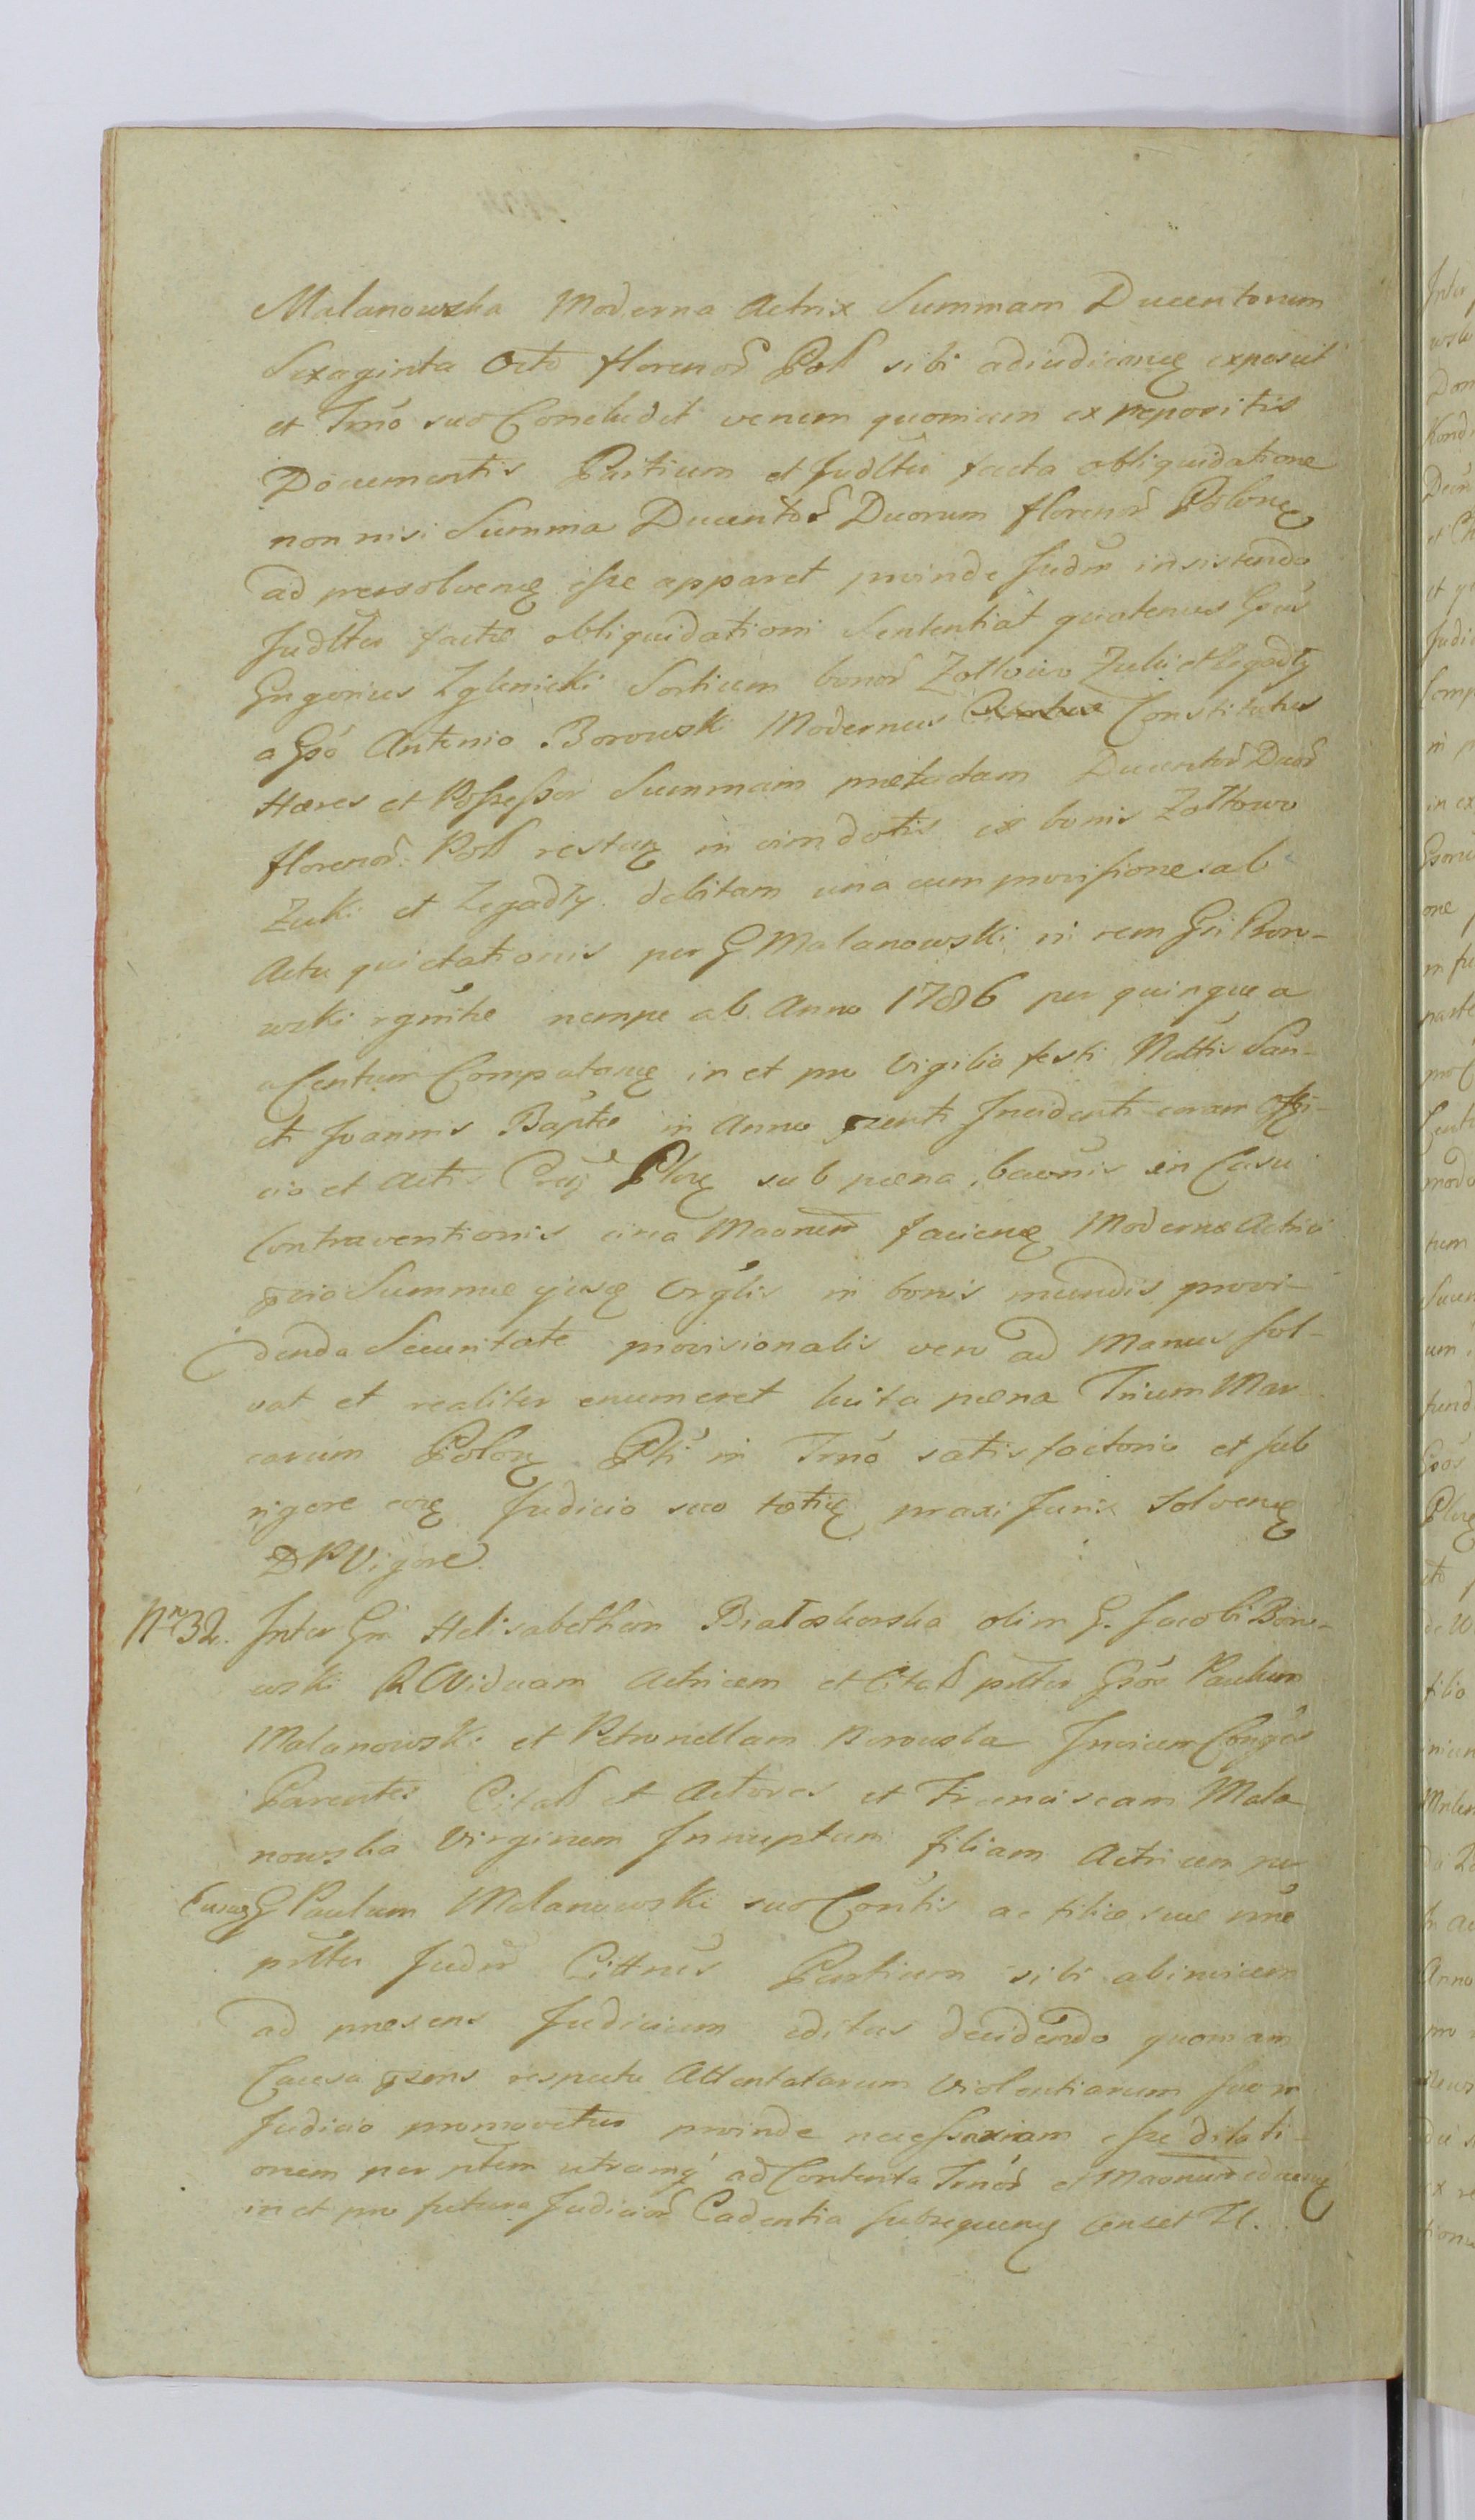 Malanowska Moderna Actrix Summam Ducentorum
Sexaginta Octo florenor Poll sibi adiudicanę exposuit
et Trno suo Concludit verum quoniam ex repositis
Documentis Partium et Judltr facta obliquidatione
non nisi Summa Ducentor Duorum florenor Polonę
ad persolvenę esse apparet proinde Judm insistendo
Judltr factæ obliquidationi Sententiat quatenus Gsus
Grigorius Zglenicki Sortium bonor Zółtowo Zuki et Legądy
a Gso Antonio Borowski Modernus Constitutus
Hæres et Possessor Summam prætactam Ducentor Duor
florenor Poll restanę in vim dotis ex bonis Zółtowo
Zuki et Legądy debitam una cum provisione ab
Actu quietationis per G Malanowski in rem Gsi Boro-
wski rgnitæ nempe ab Anno 1786 per quinque a
Centum Computanę in et pro Vigilia festi Nattis San-
cti Joannis Baptæ in Anno pzenti Incidenti coram Offi-
cio et Actis Plonę sub pæna banonis in Casu
Contraventionis circa Maonem facienę Modernæ Actrici
pzio Summæ ejusę Orglis in bonis mundis provi-
denda Securitate provisionalis vero ad Manus sol-
vat et realiter enumeret luita pæna Trium Mar-
carum Polonę Pti in Trno satisfactorio et sub
rigore eoę Judicio suo totię praxi Juris solvenę
D P Vigore.
Nr 32. Inter Gm Helisabetham Białoskorska olim G. Jacobi Boro-
wski R Viduam Actricem et Citatt pnltr Gsos Paulum
Malanowski et Petronellam Borowska Invicem Conges
Parentes Citatt et Actores et Franciscam Mala
nowska Virginem Innuptam filiam Actricem per
G Paulum Malanowski suo Contis ac filiæ suæ nne
pnltr Judm Cittnes Partium sibi abinvicem
ad præsens Judicium editas decidendo quoniam
Causa pzens respectu Attentatarum Violentiarum suo in
Judicio promovetur proinde necessariam esse dilati-
onem per ptem utramq ad Contenta Trnor et Maonum educenę
in et pro futura Judicior Cadentia subsequenę censet